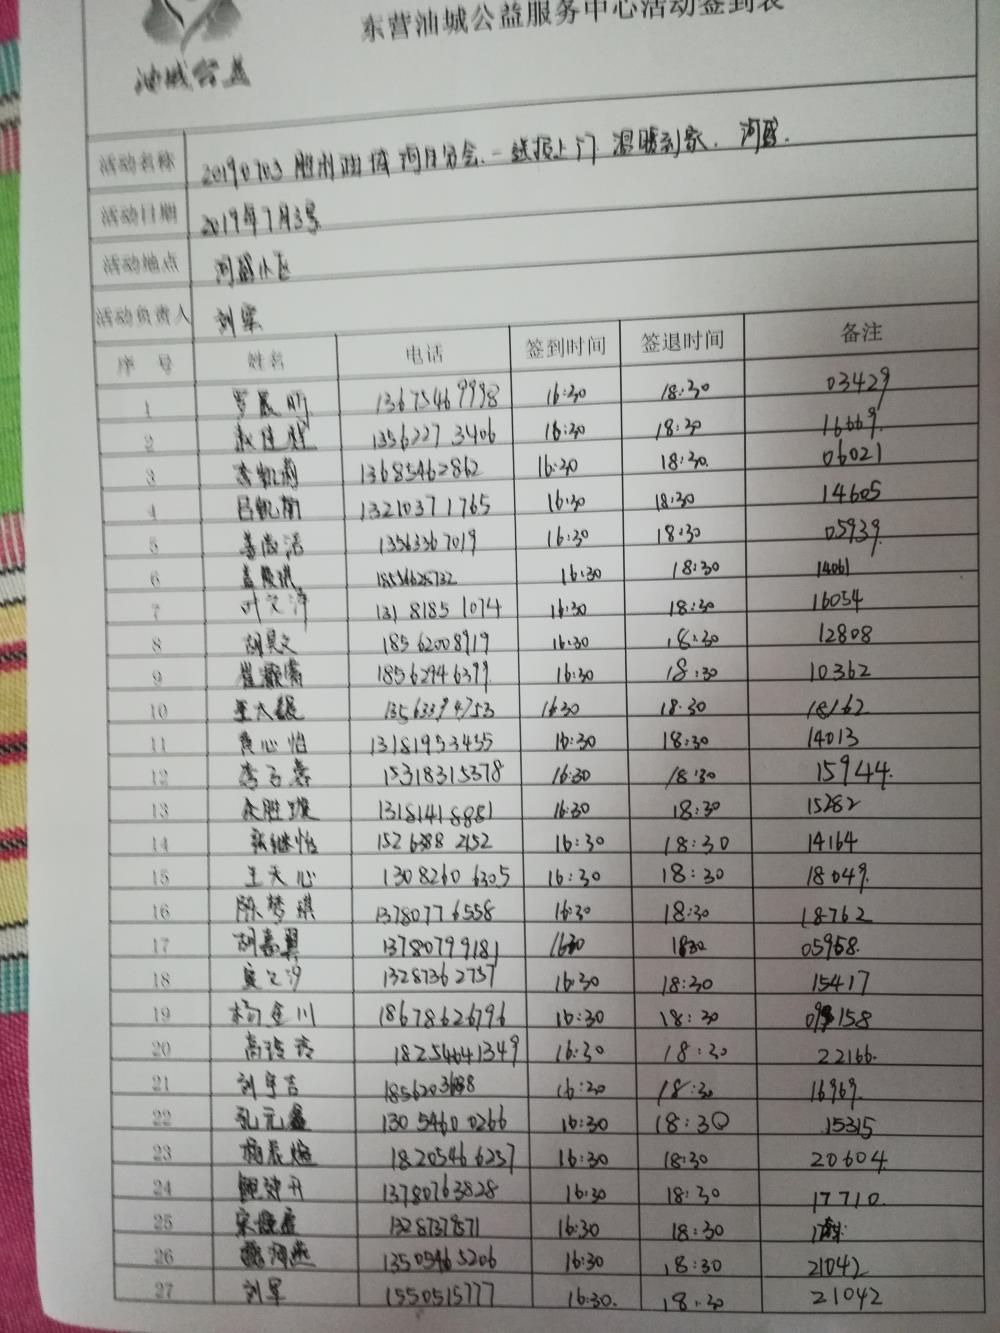 东营油城公益服务中心活动签到表
油城公益
活动名称 20190703 胜利油城河口分会.一送报上门 温暖到家. 河盛.
活动日期 2019年7月3号
活动地点 河盛小区
活动负责人 刘军
序 号 姓名 电话 签到时间 签退时间 备注
1 13675469998 16:30 18:30 03429
2 13562273406 16:30 18:30 16669.
3 李凯莉 13685462862 16:30 18:30. 06021
4 吕凯茵 13210371765 16:30 18:30 14605
5 姜尚洁 13563367019 16:30 18:30 05939.
6 孟 18554628732 16:30 18:30 14061
7 叶文泽 131 8185 1074 16:30 18:30 16054
8 胡昊文 18562008919 16:30 18:30 12808
9 崔灏霈 18562946399 16:30 18:30 10362
10 13563394753 16:30 18:30 18162
11 黄心怡 13181953455 16:30 18:30 14013
12 李子 15318315378 16:30 18:30 15944.
13 13181418881 16:30 18:30 15282
14 张继怡 152 6388 2152 16:30 18:30 14164
15 王天心 1308260 6305 16:30 18:30 18049.
16 陈梦琪 13780776558 16:30 18:30 18762
17 胡嘉翼 13780799181 1630 1830 05958.
18 13287362757 16:30 18:30 15417
19 杨金川 18678626796 16:30 18:30 158
20 高 18254641349 16:30 18:30 22166.
21 刘宇吉 16:30 18:30 16969.
22 孔元鑫 130 5460 0266 16:30 18:30 15315
23 杨辰煊 18205466257 16:30 18:30 20604.
24 13780763828 16:30 18:30 17710.
25 宋 1328737871 16:30 18:30
26 燕 13505465206 16:30 18:30 21042
27 刘军 1550515777 16:30. 18:30 21042